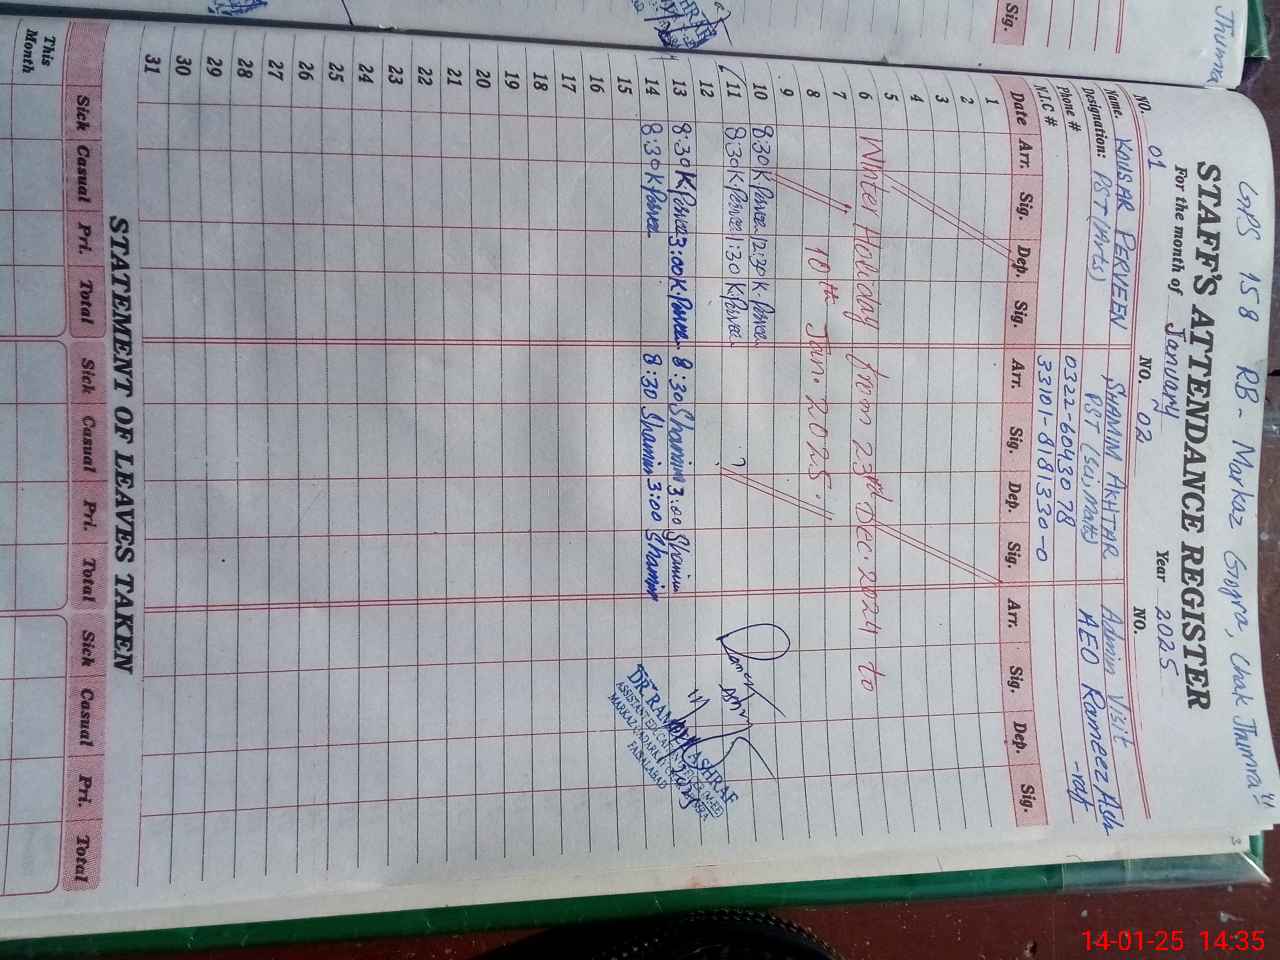 GPS 158 RB- Markaz Gogra, Chak Jhumra"
STAFF'S ATTENDANCE REGISTER
For the month of January Year 2025
NO. 01 NO. 02 NO.
Name. KOUSAR PERVEEN SHAMIM AKHTAR Admin Visit
Designation: PST (Arts) PST (Sci, Math) AEO Rameez Ash
Phone # 0322-6043078 -raf
N.I.C # 33101-8181330-0
Date Arr. Sig. Dep. Sig. Arr. Sig. Dep. Sig. Arr. Sig. Dep. Sig.
1
2
3
4
5
6 Winter Holiday from 23rd Dec. 2024 to
7
8 10th Jan. 2025
9
10 8:30 K.Perveen 12:30 K.Perveen
11 8:30 K.Perveen 1:30 K.Perveen ?
12
13 8:30 K.Perveen 3:00 K.Perveen 8:30 Shamim 3:00 Shamim
14 8:30 K.Perveen 8:30 Shamim 3:00 Shamim
15
16
17
18
19
20
21
22
23
24
25
26
27
28
29
30
31
ASHRAF
FAISALABAD
STATEMENT OF LEAVES TAKEN
Sick Casual Pri. Total Sick Casual Pri. Total Sick Casual Pri. Total
This
Month
Jhumra
Sig.
14-01-25 14:35